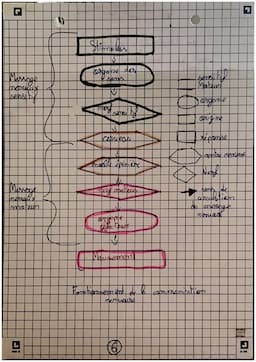 Stimulus
organe des sens
nerf sensitif
Message nerveux sensitif
cerveau
moelle épinière
Message nerveux moteur
nerf moteur
organe effecteur
Mouvement
sensitif
Moteur
organe
origine
réponse
centre nerveux
Nerf
sens de
nerveux
Fonctionnement de la communication
nerveuse
6